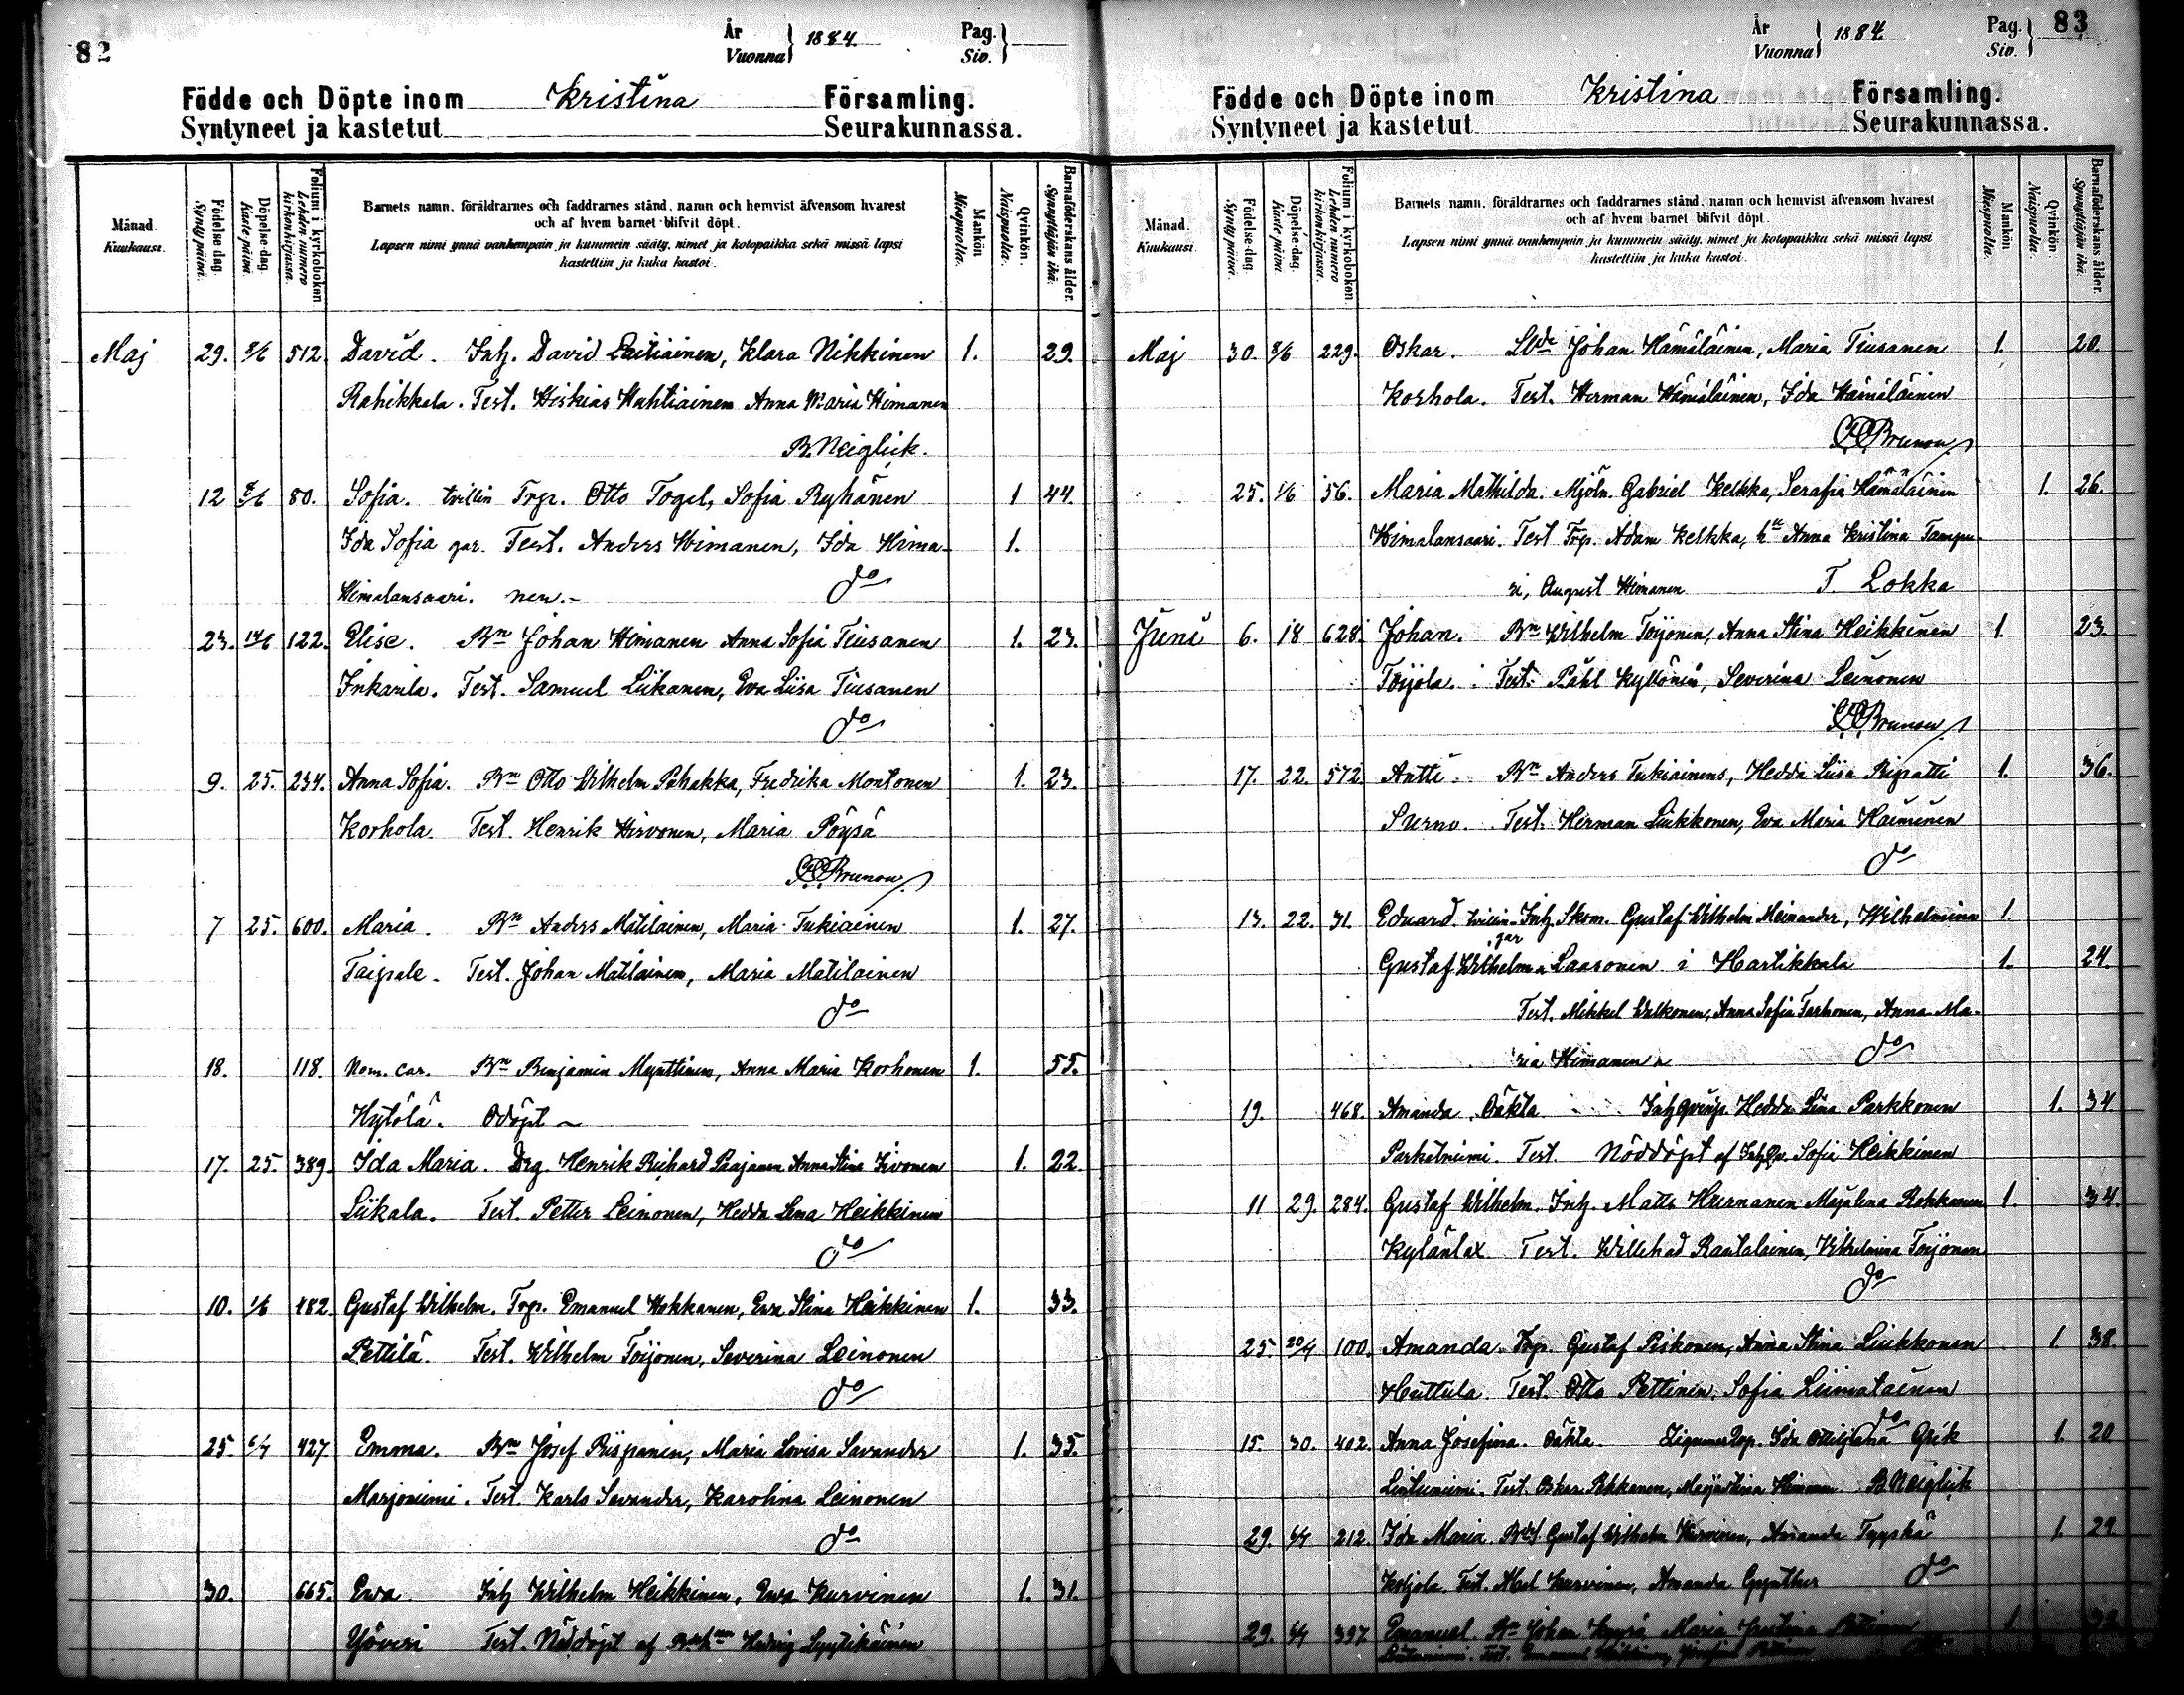 82
År
Vuonna } 1884.
Pag.
Siv. }
Födde och Döpte inom Kristina Församling.
Syntyneet ja kastetut Seurakunnassa.
Månad. Kuukausi.
Födelse-dag. Synty päivä.
Döpelse-dag. Kaste päivä.
Folium i kyrkoboken Lehden numero kirkonkirjassa.
Barnets namn, föräldrarnes och faddrarnes stånd, namn och hemvist äfvensom hvarest
och af hvem barnet blifvit döpt.
Lapsen nimi ynnä vanhempain ja kummein sääty, nimet ja kotopaikka sekä missä lapsi
kastettiin ja kuka kastoi.
Mankön Miespuolia.
Qvinkön. Naispuolia.
Barnaföderskans ålder. Synnyttäjän ikä.
Maj 29. 8/6 512. David. Inh. David Laitiainen, Klara Nikkinen 1. 29.
Rahikkala. Test. Hiskias Huhtiainen Anna Maria Himanen
B. Neiglick.
12 8/6 80. Sofia. tvillin Trp. Otto Togel, Sofia Ryhänen 1 44.
Ida Sofia gar. Test. Anders Himanen, Ida Hima- 1.
Himalansaari. nen.- do
23. 14/6 122. Elise. Bn Johan Himanen Anna Sofia Tiusanen 1. 23.
Inkarila. Test. Samuel Liikanen, Eva Liisa Tiusanen
do
9. 25. 234. Anna Sofia. Bn Otto Wilhelm Pihakka, Fredrika Montonen 1. 23.
Korhola. Test. Henrik Hirvonen, Maria Pöysä
Brunou
7 25. 600. Maria. Bn Anders Matilainen, Maria Tukiainen 1. 27.
Taipale. Test. Johan Matilainen, Maria Matilainen
do
18. 118. Nom. car. Bn Benjamin Mynttinen, Anna Maria Korhonen 1. 55.
Hytölä. Odöpt
17. 25. 389. Ida Maria. Drg. Henrik Richard Paajanen Anna Stina Sivonen 1. 22.
Liikala. Test. Petter Leinonen, Hedda Lena Heikkinen
do
10. 1/6 482. Gustaf Wilhelm. Trp. Emanuel Hokkanen, Eva Stina Heikkinen 1. 33.
Pettilä. Test. Wilhelm Toijonen, Severina Leinonen
do
25. 6/7 427 Emma. Bn Josef Piispanen, Maria Lovisa Savander 1. 35.
Marjoniemi. Test. Karls Savander, Karolina Leinonen
do
30. 665. Ewa Inh Wilhelm Heikkinen, Ewa Kurvinen 1. 31.
Yöveri Test. Nöddöpt af Hedvig Lyytikäinen
År
Vuonna } 1884.
Pag.
Siv. } 83
Födde och Döpte inom Kristina Församling.
Syntyneet ja kastetut Seurakunnassa.
Månad. Kuukausi.
Födelse-dag. Synty päivä.
Döpelse-dag. Kaste päivä.
Folium i kyrkoboken Lehden numero kirkonkirjassa.
Barnets namn, föräldrarnes och faddrarnes stånd, namn och hemvist äfvensom hvarest
och af hvem barnet blifvit döpt.
Lapsen nimi ynnä vanhempain ja kummein sääty, nimet ja kotopaikka sekä missä lapsi
kastettiin ja kuka kastoi.
Mankön. Miespuolia.
Qvinkön. Naispuolia.
Barnaföderskans ålder. Synnyttäjän ikä.
Maj 30. 8/6 229. Oskar. Johan Hämäläinen, Maria Tiusanen 1. 20.
Korhola. Test. Herman Hämäläinen, Ida Hämäläinen
Brunou
25. 1/6 56. Maria Mathilda. Mjöln. Gabriel Kelkka, Serafia Hämäläinen 1. 26.
Himalansaari. Test Trp. Adam Kelkka, Anna Kristina Tampu-
ri, August Himanen T. Lokka
Juni 6. 18 628. Johan. Bn Wilhelm Toijonen, Anna Stina Heikkinen 1. 23.
Toijola. Test. Påhl Kyllönen, Severina Leinonen
Brunou
17. 22. 572. Antti. Bn Anders Tukiainens, Hedda Liisa Ripatti 1. 36.
Surno. Test. Herman Liukkonen, Eva Maria Häminen
do
13. 22. 31. Eduard. tvillin- Inh. Skom. Gustaf Wilhelm Meinander, Wilhelmina 1.
Gustaf Wilhelm gar Laasonen i Hartikkala 1. 24.
Test. Mikkel Walkonen, Anna Sofia Tarhonen, Anna Ma-
ria Himanen do
19. 468. Amanda. Oäkta Inh Hedda Lina Parkkonen 1. 34
Parkatniemi. Test. Nöddöpt af Sofia Heikkinen
11 29. 284. Gustaf Wilhelm. Inh. Matts Hurnanen Majalena Rehkonen 1. 34.
Kylänlax Test. Willehad Rautalainen, Wilhelmina Toijonen
do
25. 20/7 100. Amanda. Trp. Gustaf Piskonen, Anna Stina Liukkonen 1. 38.
Huttula. Test. Otto Pettinen, Sofia Liimatainen
do
15. 30. 402. Anna Josefina. Oäkta. Ida Grik 1. 20
Lintuniemi. Test. Oskar Himanen. B Neiglick
29. 6/7 212. Ida Maria. Gustaf Wilhelm Kurvinen, Amanda Tyyskä 1. 29.
Koljola. Test. Abel Kurvinen, Amanda Gynther do
29. 6/7 397. Emanuel. Bn Johan Maria 1
Test. Emanuel